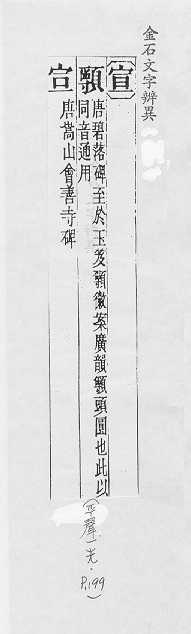 金石文字辨異
〔宣〕
顆 唐碧落碑至於玉笈顆徽案廣韻顆頭圓也此以
同音通用
亯 唐嵩山會善寺碑
(平聲一先·
P.199)